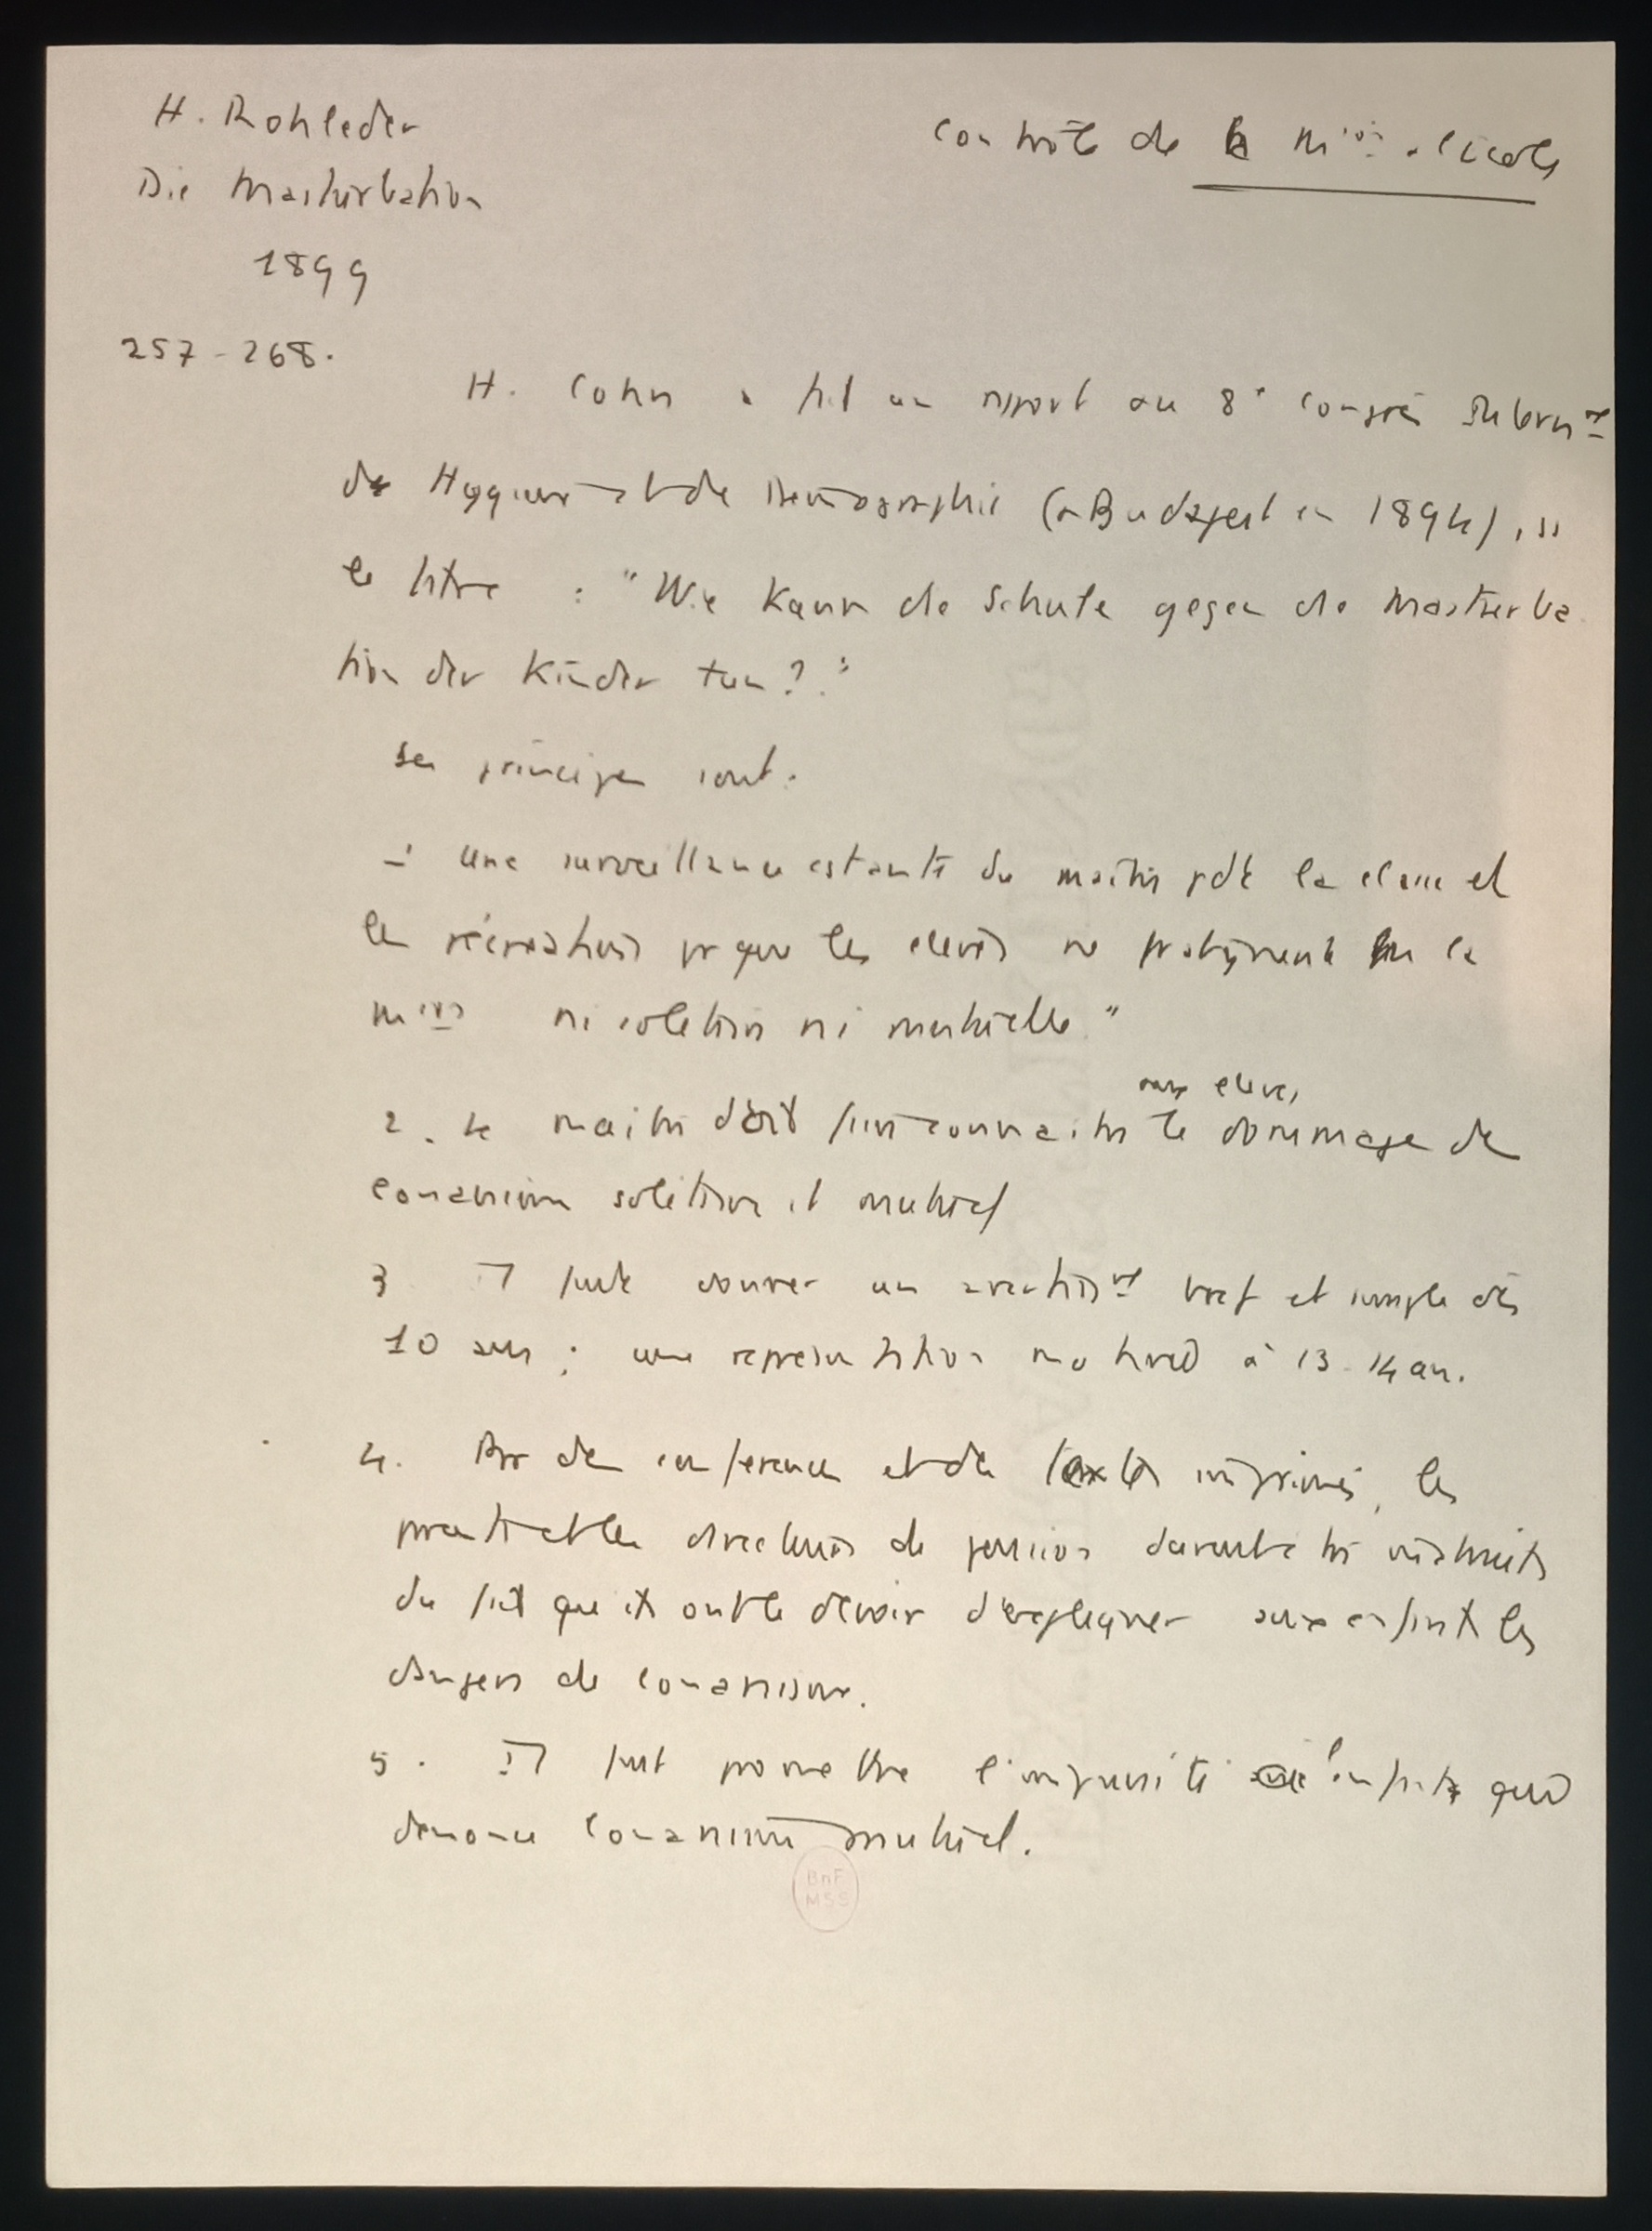 H. Rohleder
Die Masturbation
1899
257-268.
Contrôle de la mion à l'école
H. Cohn a fait un rapport au 8e congrès Internal
de Hygiene et de Demographie (à Budapest en 1894), ss
le titre : "Wie kann die Schule gegen die Masturba
tion der Kinder tun?"
Ses principes sont.
1 Une surveillance cstante du maitre pdt la classe et
les récréations pr que les eleves ne pratiquent la
mion ni solitaire ni mutuelle."
2. Le maitre doit faire connaitre aux eleves le dommage de
l'onanisme solitaire et mutuel
3 Il faut donner un avertisst bref et simple dès
10 ans ; une à 13-14 ans.
4. Par des conferences et des textes imprimés, les
parents et les directeurs de pension doivent etre instruits
du fait que ils ont le devoir d'expliquer aux enfants les
dangers de l'onanisme.
5. Il faut promettre l'impunité à l'enfant qui
dénonce l'onanisme mutuel.
BnF
MSS